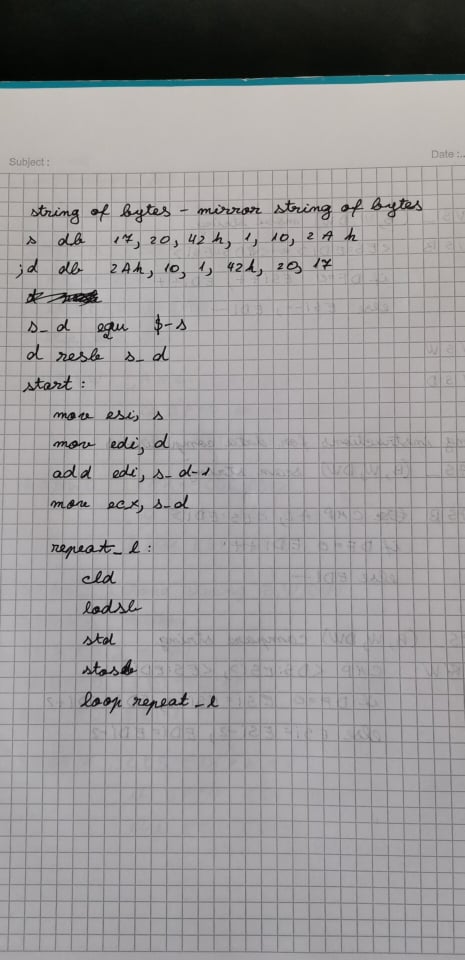 Subject :
Date :..
string of bytes - mirror string of bytes
s db 17, 20, 42h, 1, 10, 2Ah
;d db 2Ah, 10, 1, 42h, 20, 17
s_d equ $-s
d resb s_d
start :
mov esi, s
mov edi, d
add edi, s_d-1
mov ecx, s_d
repeat_l :
cld
lodsb
std
stosb
loop repeat_l